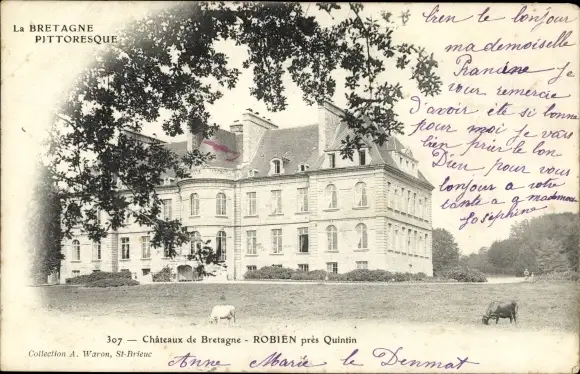 La BRETAGNE
PITTORESQUE
bien le bonjour
mademoiselle
Francine je
vous remercie
d'avoir ete si bonne
pour moi je vais
bien prier le bon
Dieu pour vous
bonjour a votre
tante a mademoi
Josephine
307 — Châteaux de Bretagne - ROBIEN près Quintin
Collection A. Waron, St-Brieuc
Anne Marie le Denmat